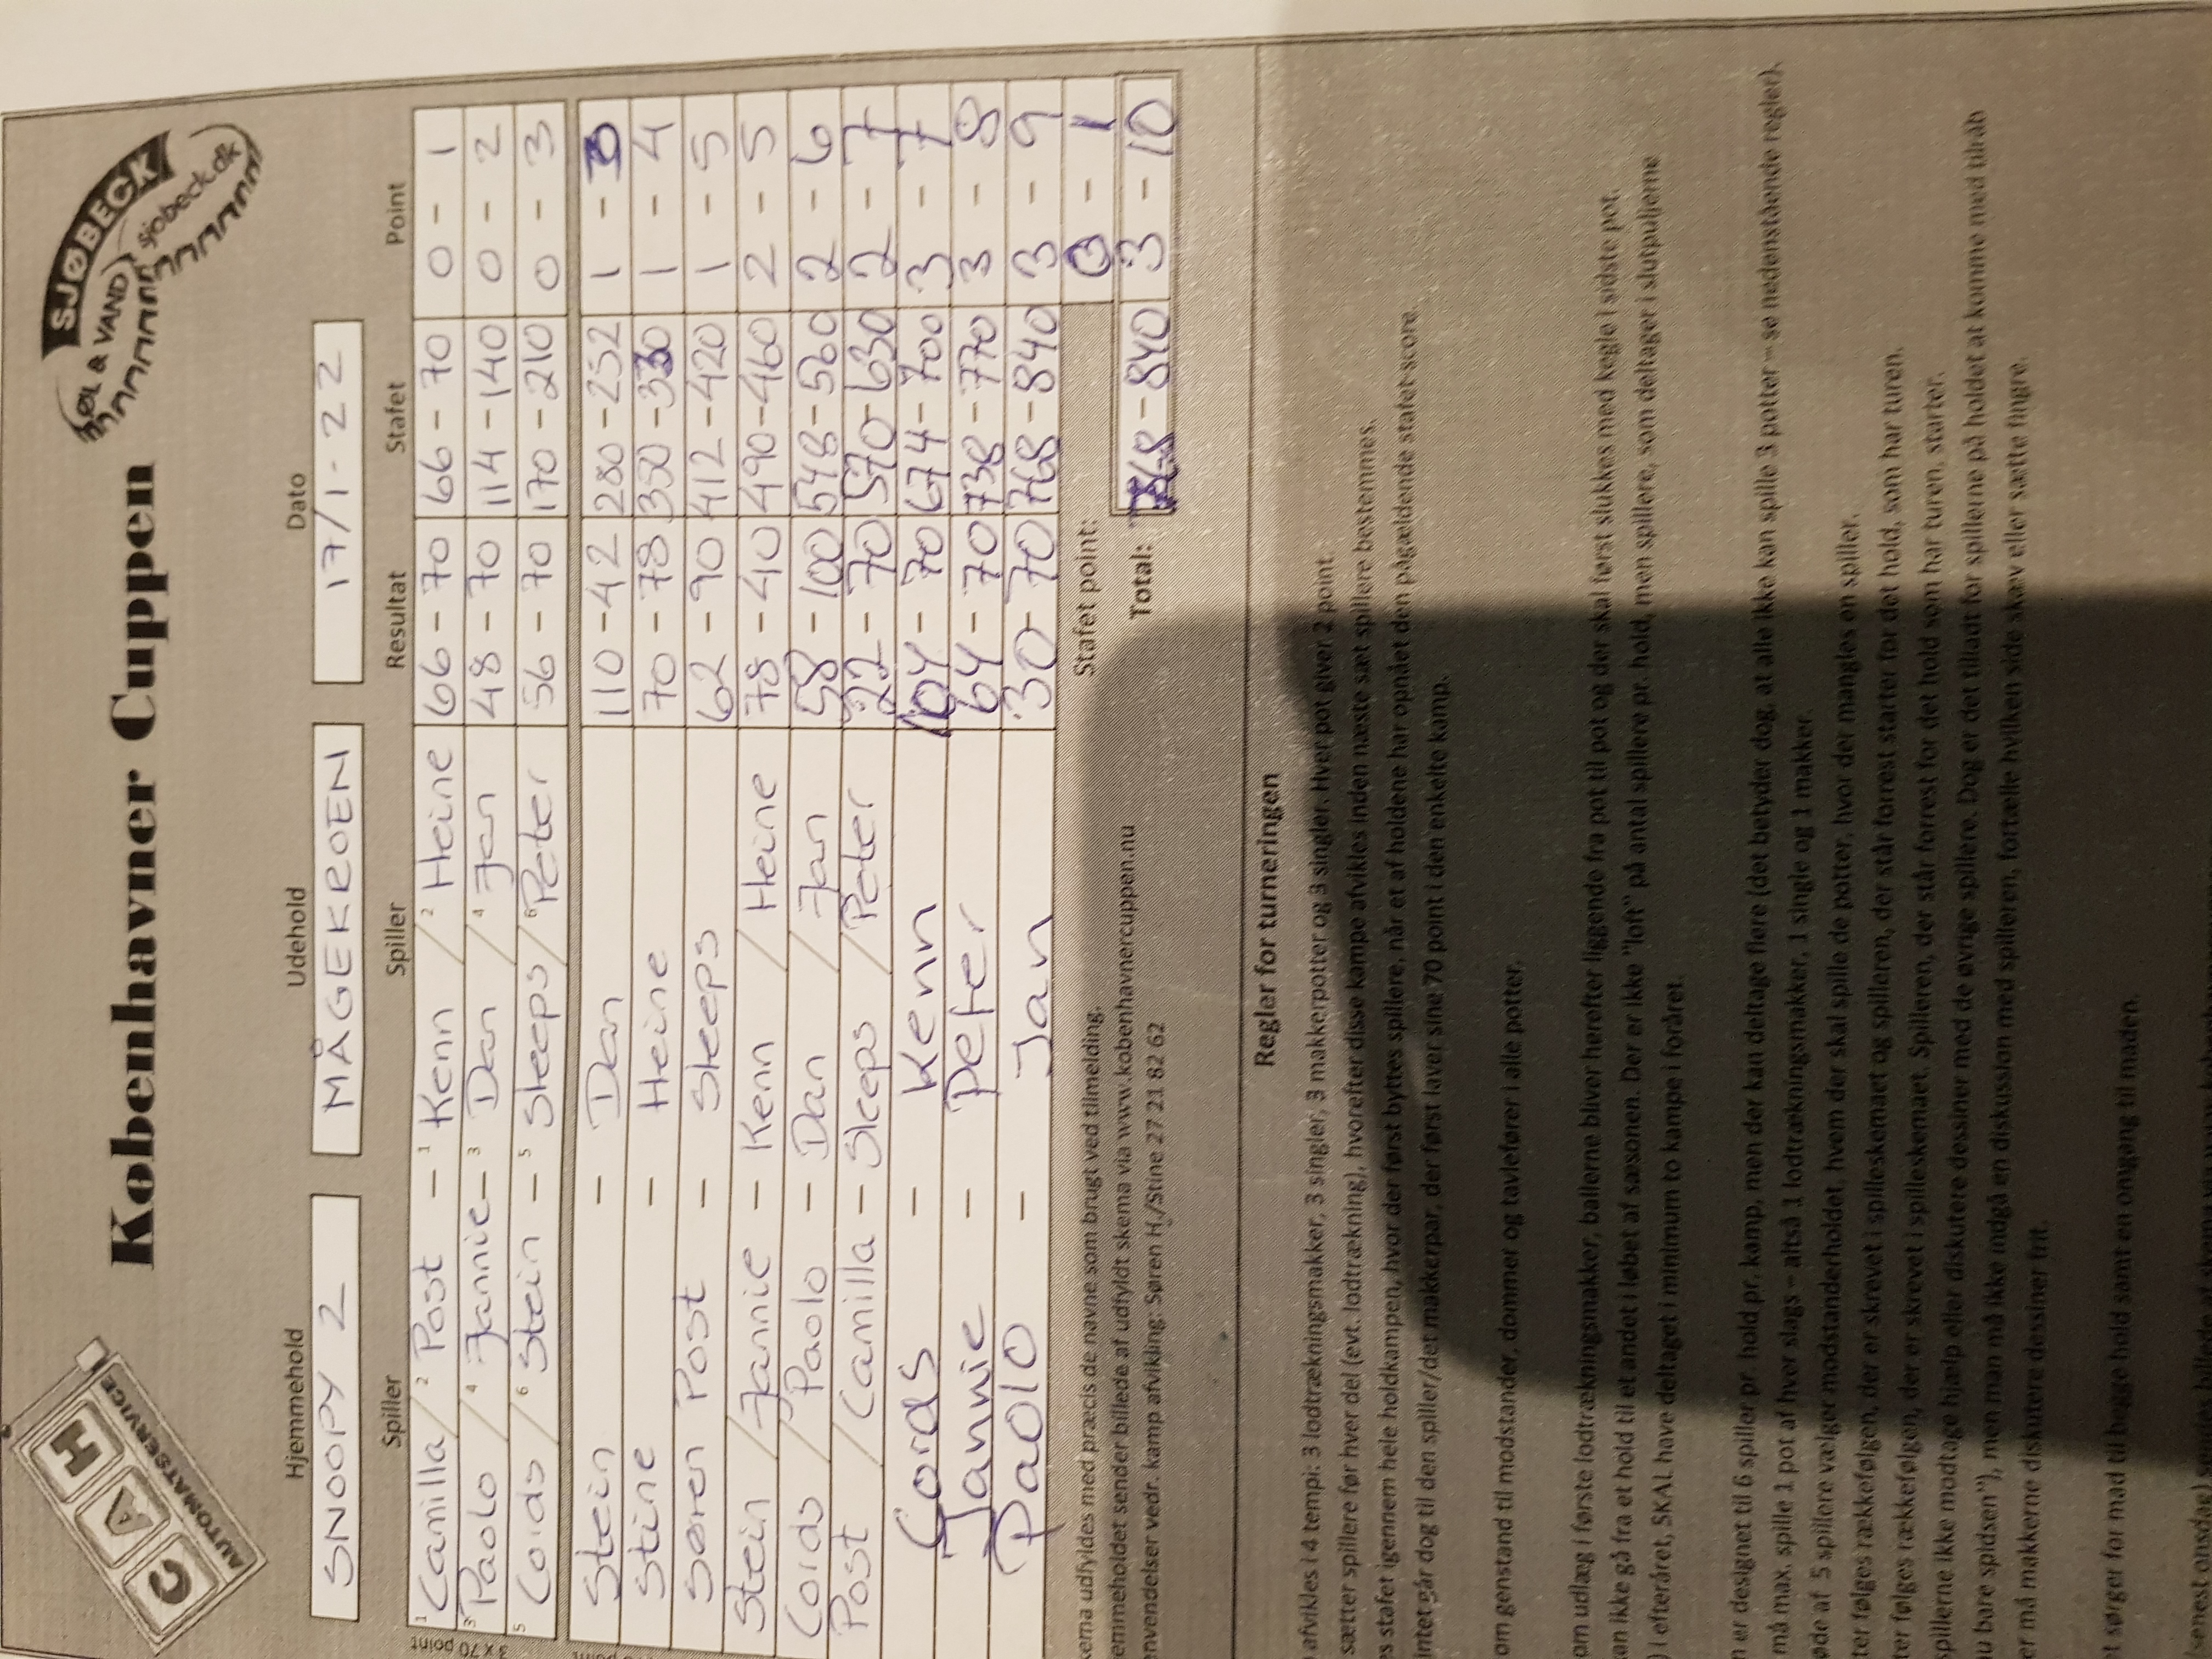 CAH
AUTOMATSERVICE
Københavner Cuppen
SJØBECK
ØL & VAND
sjobeck.dk
Hjemmehold Udehold Dato
SNOOPY 2 MÅGEKROEN 17/1-22
Spiller Spiller Resultat Stafet Point
1 Camilla / 2 Post - 1 Kenn / 2 Heine 66 - 70 66 - 70 0 - 1
3 Paolo / 4 Jannie - 3 Dan / 4 Jan 48 - 70 114 - 140 0 - 2
5 Coids / 6 Stein - 5 Sleeps / 6 Peter 56 - 70 170 - 210 0 - 3
3 x 70 point
Stein - Dan 110 - 42 280 - 252 1 - 3
Stine - Heine 70 - 78 350 - 330 1 - 4
Søren Post - Sleeps 62 - 90 412 - 420 1 - 5
Stein / Jannie - Kenn / Heine 78 - 40 490 - 460 2 - 5
Coids / Paolo - Dan / Jan 58 - 100 548 - 560 2 - 6
Post / Camilla - Sleeps / Peter 22 - 70 570 - 630 2 - 7
Coids - Kenn 104 - 70 674 - 700 3 - 7
Jannie - Peter 64 - 70 738 - 770 3 - 8
Paolo - Jan 30 - 70 768 - 840 3 - 9
Stafet point: 0 - 1
Total: 768 - 840 3 - 10
udfyldes med præcis de navne som brugt ved tilmelding.
sender billede af udfyldt skema via www.kobenhavnercuppen.nu
vedr. kamp afvikling: Søren H./Stine 27 21 82 62
Regler for turneringen
afvikles i 4 tempi: 3 lodtrækningsmakker, 3 singler, 3 makkerpotter og 3 singler. Hver pot giver 1 point.
sætter spillere før hver del (evt. lodtrækning), hvorefter disse kampe afvikles inden næste sæt spillere bestemmes.
stafet igennem hele holdkampen, hvor der først byttes spillere, når et af holdene har opnået den pågældende stafet-score.
går dog til den spiller/det makkerpar, der først laver sine 70 point i den enkelte kamp.
om genstand til modstander, dommer og tavlefører i alle potter.
om udlæg i første lodtrækningsmakker, ballerne bliver herefter liggende fra pot til pot og der skal først slukkes med kegle i sidste pot.
ikke gå fra et hold til et andet i løbet af sæsonen. Der er ikke "loft" på antal spillere pr. hold, men spillere, som deltager i slutpuljerne
i efteråret, SKAL have deltaget i minimum to kampe i foråret.
er designet til 6 spiller pr. hold pr. kamp, men der kan deltage flere (det betyder dog, at alle ikke kan spille 3 potter – se nedenstående regler).
må max. spille 1 pot af hver slags – altså 1 lodtrækningsmakker, 1 single og 1 makker.
af 5 spillere vælger modstanderholdet, hvem der skal spille de potter, hvor der mangles en spiller.
følges rækkefølgen, der er skrevet i spilleskemaet og spilleren, der står forrest starter for det hold, som har turen.
følges rækkefølgen, der er skrevet i spilleskemaet. Spilleren, der står forrest for det hold som har turen, starter.
spillerne ikke modtage hjælp eller diskutere dessiner med de øvrige spillere. Dog er det tilladt for spillerne på holdet at komme med tilråb
bare spidsen"), men man må ikke indgå en diskussion med spilleren, fortælle hvilken side skæv eller sætte fingre.
må makkerne diskutere dessiner frit.
sørger for mad til begge hold samt en omgang til maden.